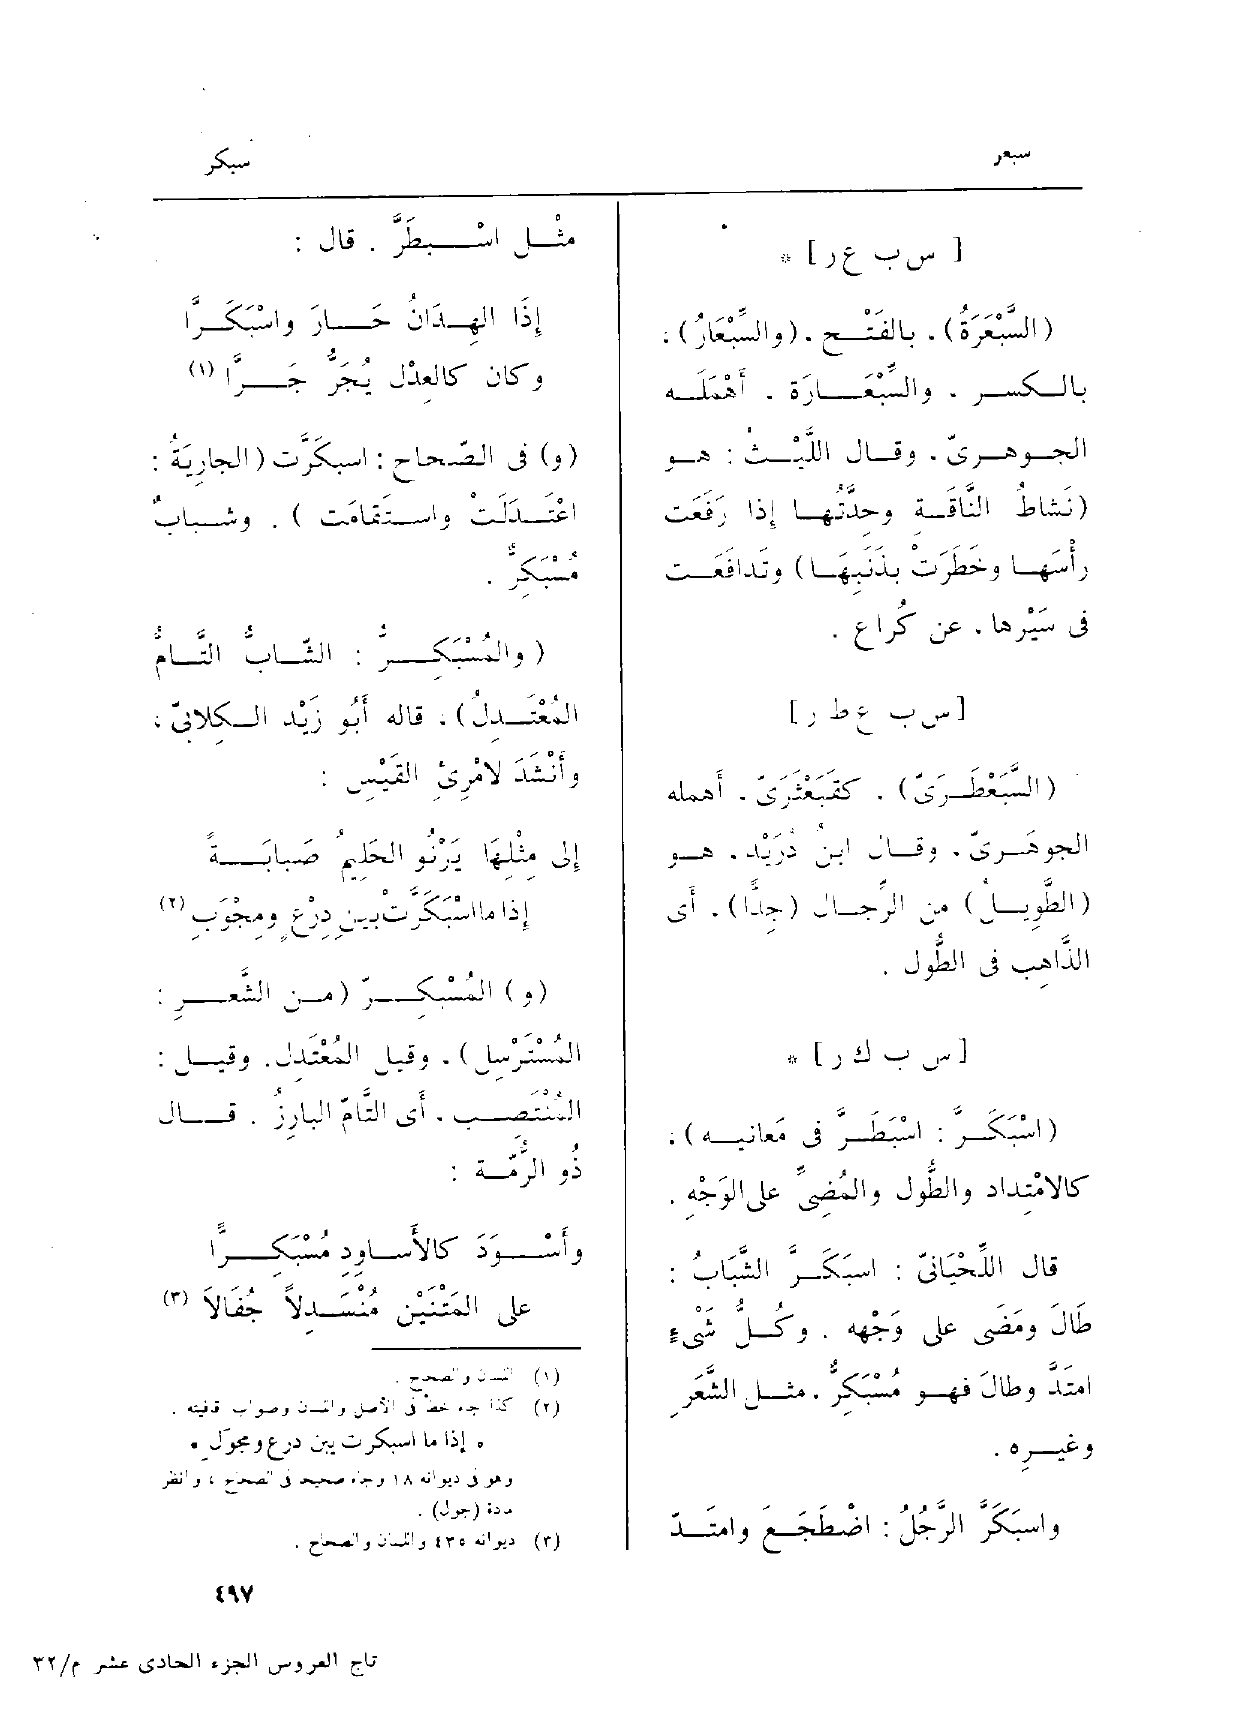 سبعر
سبكر
[ س ب ع ر ] *
(السَّبْعَرَةُ)، بالفَتْح، (والسِّبْعَارُ)؛
بالكسر، والسِّبْعَارَة، أَهْمَلَه
الجوهرىّ، وقال اللَّيْثُ : هو
(نَشاطُ النَّاقَة وحِدَّتُها إذا رَفَعَت
رأْسَها وخَطَرَتْ بذَنَبِهَا) وتَدافَعَت
فى سَيْرها، عن كُراع .
[ س ب ع ط ر ]
(السَّبَعْطَرَىّ)، كقَبَعْثَرَىّ، أهمله
الجوهَرىّ، وقال ابنُ دُرَيْد، هو
(الطَّوِيلُ) من الرِّجال (جِدًّا)، أى
الذَّاهِب فى الطُّول .
[ س ب ك ر ] *
(اسْبَكَرَّ : اسْبَطَرَّ فى مَعَانيه)؛
كالامْتِداد والطُّول والمُضِىِّ على الوَجْهِ .
قال اللِّحْيَانىّ : اسبَكَرَّ الشَّبَابُ :
طَالَ ومَضَى على وَجْهه . وكُلُّ شَىْءٍ
امتَدَّ وطالَ فهو مُسْبَكِرٌّ، مثل الشَّعَرِ
وغيرِه .
واسبَكَرَّ الرَّجُلُ : اضْطَجَعَ وامتَدّ
مثْل اسْبطَرَّ . قال :
إذَا الهِدَانُ حَارَ واسْبَكَرَّا
وكان كالعِدْل يُجَرُّ جَرَّا (١)
(و) فى الصّحاح : اسبكَرَّت (الجارِيَةُ :
اعْتَدَلَتْ واستَقَامَت ) . وشبابٌ
مُسْبَكِرٌّ .
( والمُسْبَكِرُّ : الشّابُّ التَّامُّ
المُعْتَدِلُ)، قاله أَبُو زَيْد الكِلابىّ،
وأَنْشَدَ لامْرِئِ القَيْسِ :
إلى مِثْلِهَا يَرْنُو الحَلِيمُ صَبَابَةً
إذا ما اسْبَكَرَّتْ بين دِرْعٍ ومِجْوَبِ (٢)
(و) المُسْبَكِرّ (من الشَّعرِ :
المُسْتَرْسِل)، وقيل المُعْتَدل، وقيل :
المُنْتَصِب، أى التَّامّ البارِزُ . قال
ذُو الرُّمَّة :
وأَسْوَدَ كالأَسَاوِدِ مُسْبَكِرًّا
على المَتْنَيْنِ مُنْسَدِلاً جُفَالاَ (٣)
(١) اللسان والصحاح .
(٢) كذا جاء خطأ فى الأصل واللسان وصواب قافيته .
* إذا ما اسبكرت بين درع ومجولِ *
وهو فى ديوانه ١٨ وجاء صحيحا فى الصحاح ، وانظر
مادة (جول) .
(٣) ديوانه ٤٣٥ واللسان والصحاح .
٤٩٧
تاج العروس الجزء الحادى عشر م/٣٢